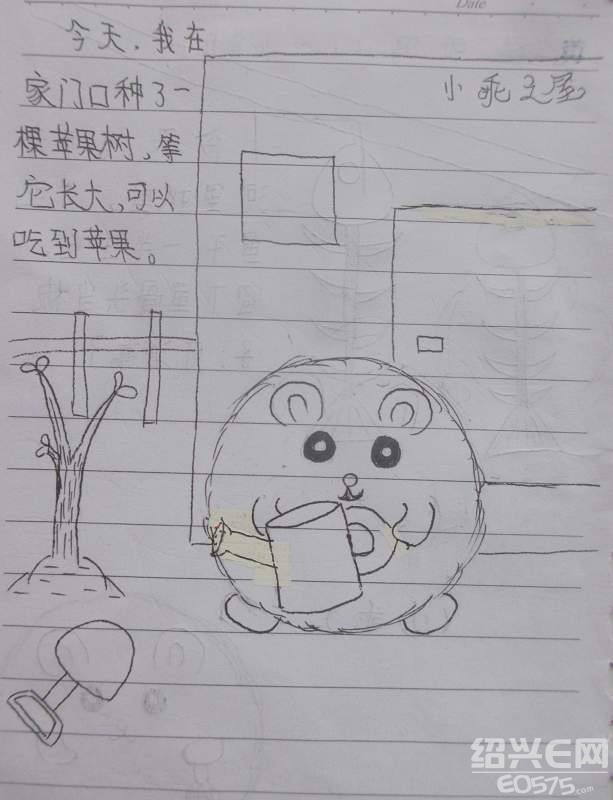 Date
今天，我在
家门口种了一
棵苹果树，等
它长大，可以
吃到苹果。
小乖之屋
绍兴E网
E0575.com